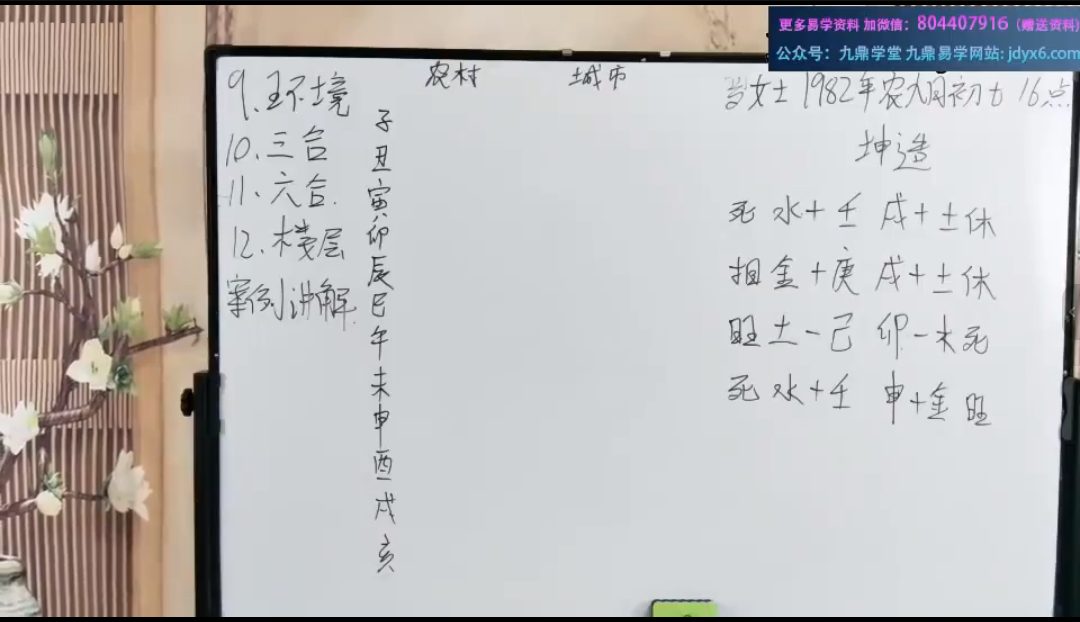 更多易学资料 加微信：804407916（赠送资料）
公众号：九鼎学堂 九鼎易学网站：jdyx6.com
9、环境
10、三合
11、六合
12、楼层
案例讲解
农村 土城市
子
丑
寅
卯
辰
巳
午
未
申
酉
戌
亥
女士 1982年农九月初七 16点
坤造
死 水+壬 戌+土休
相 金+庚 戌+土休
旺 土-己 卯-木死
死 水+壬 申+金 旺